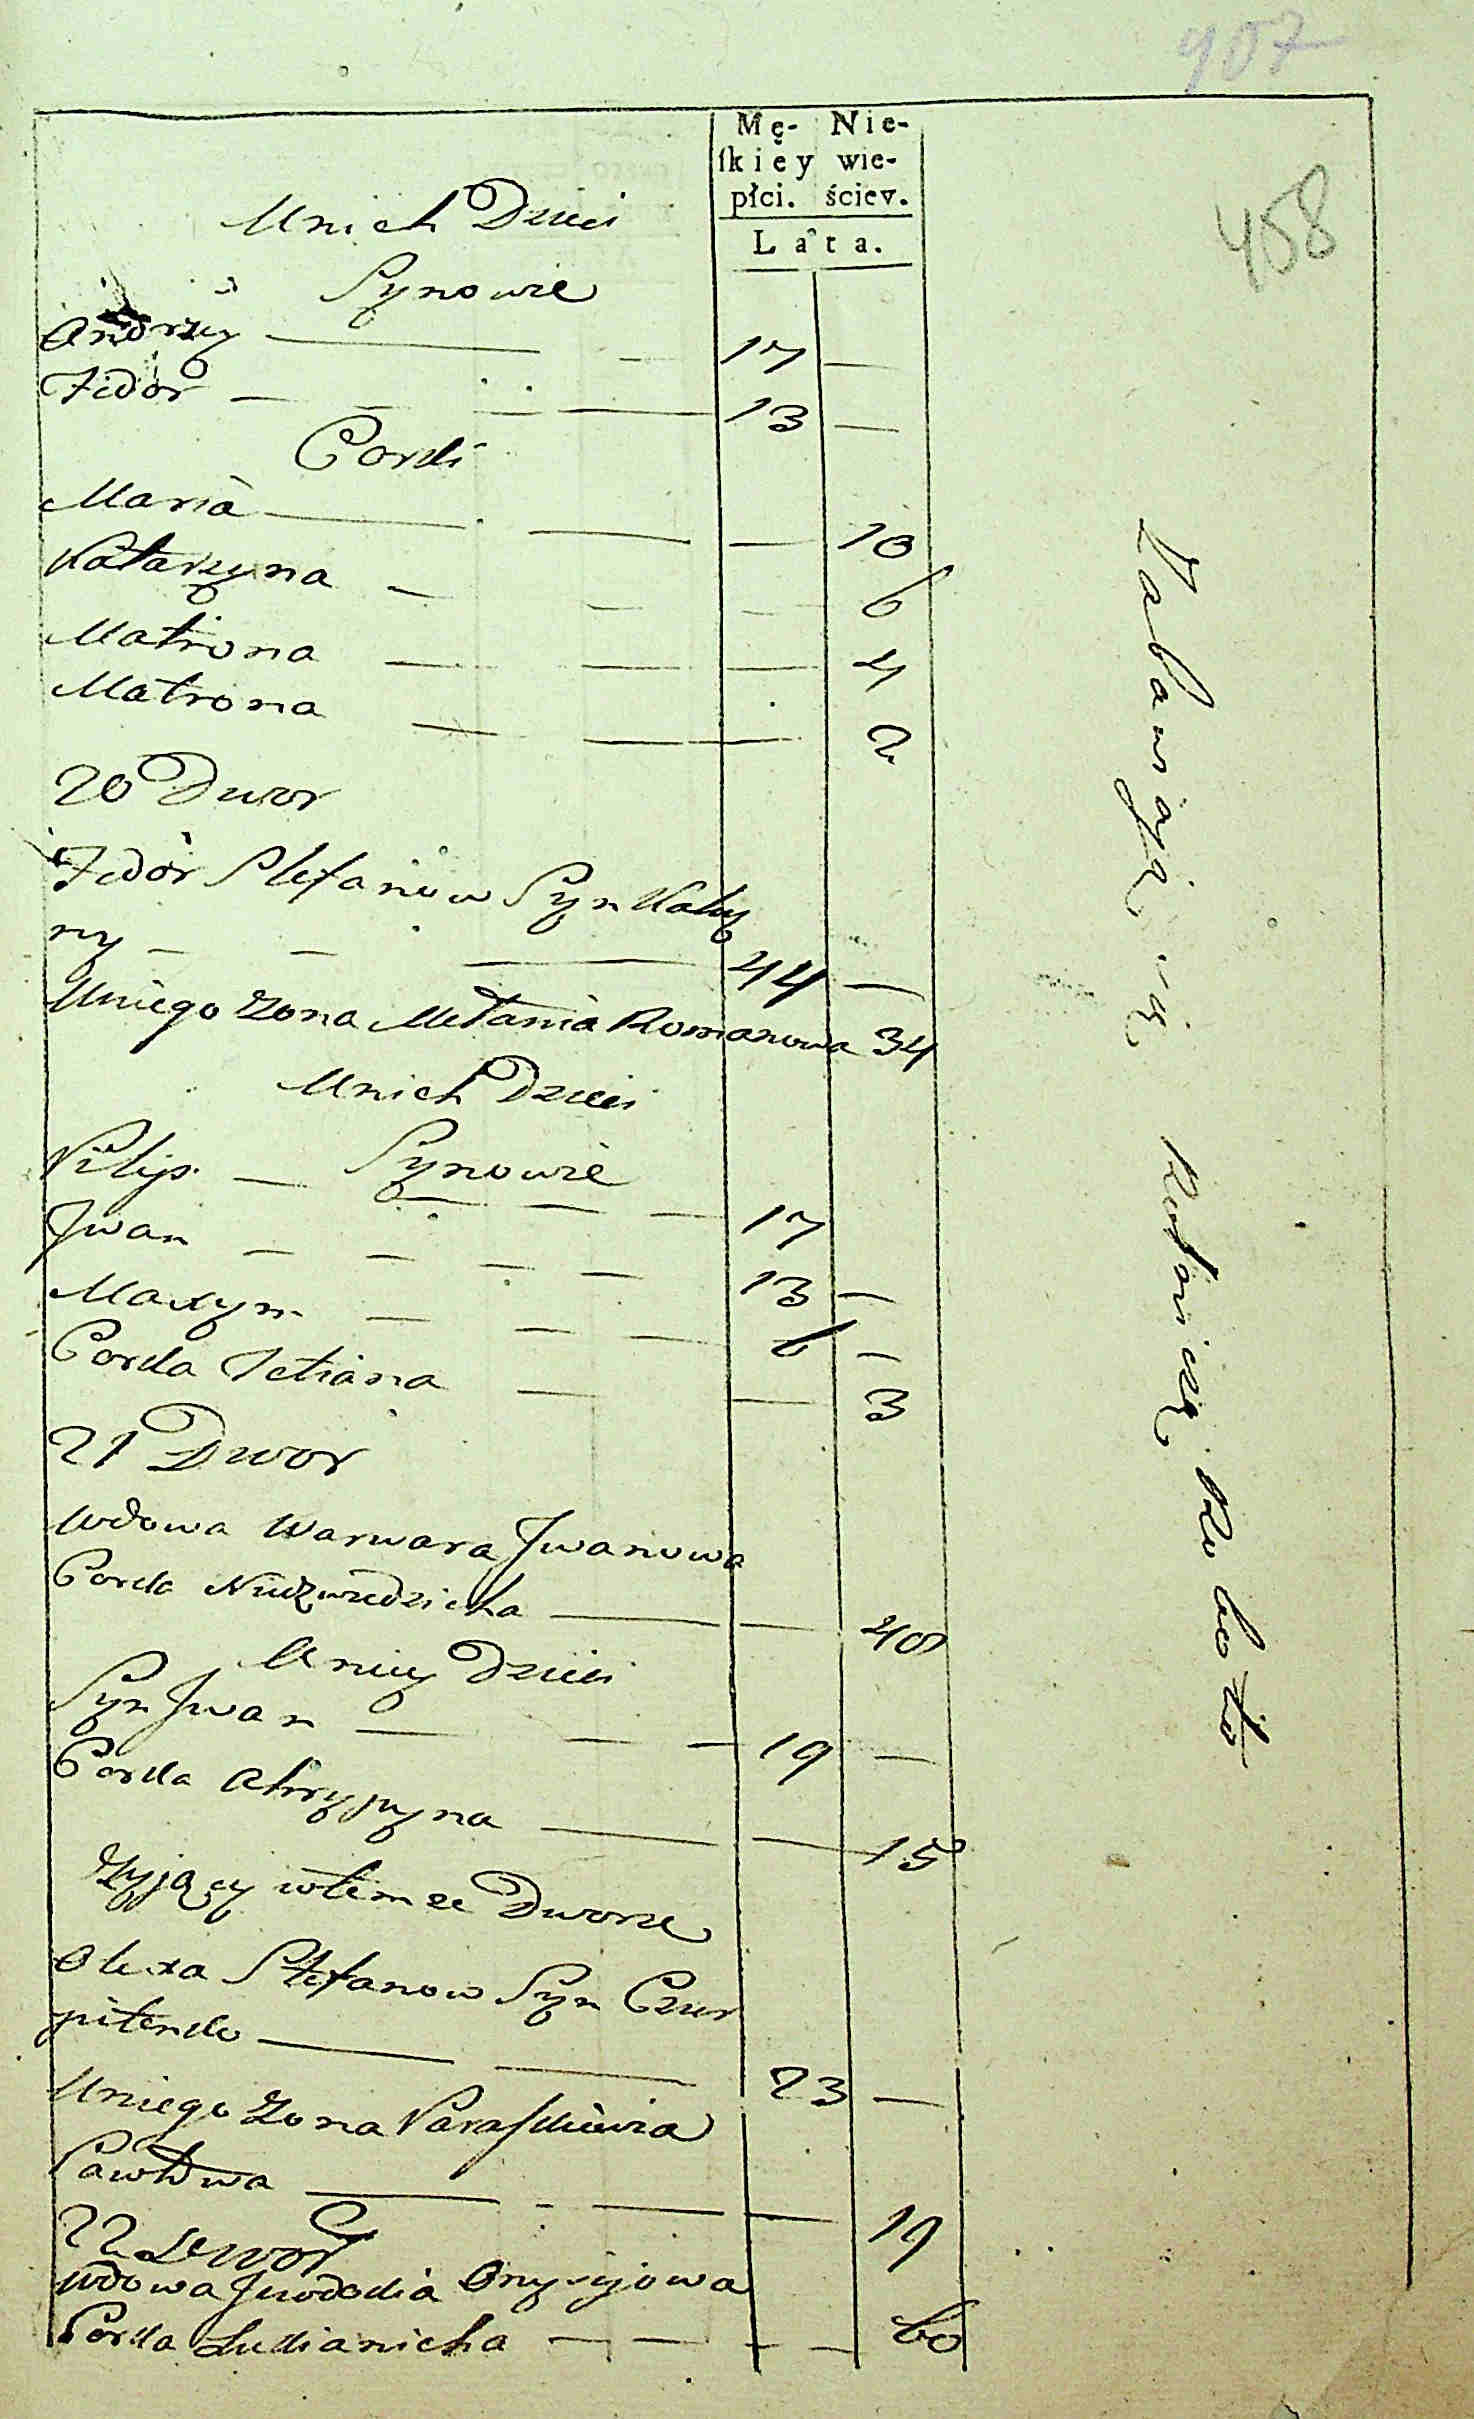 907
458
Mę- Nie-
skiey wie-
płci. ściey.
Lata.
Unich Dzieci
Synowie
Andrzey — — 17 —
Fedor — — — — 13 —
Corki
Maria — — — 10
Katarzyna — — — 6
Matrona — — — 4
Matrona — — 2
20 Dwor
Fedor Stefanow Syn Kaly
ny — — — 44 —
Uniego Zona Melania Romanowa 34
Unich Dzieci
Synowie
Filip — — — — 17
Iwan — — — — 13 —
Maxym — — — 6 —
Corka Tetiana — — 3
21 Dwor
Wdowa Warwara Iwanowa
Corka Niedzwiedzicha — — 40
Uniey Dzieci
Syn Iwan — — — 19 —
Corka Ahrypyna — — 15
Zyjący wtemze Dworze
Olexa Stefanow Syn Czur
pitenko — — 23 —
Uniego Zona Paraskiewia
Pawłowa — - — — 19
22 Dwor
Wdowa Jewdokia Onysijowa
Corka Lukianicha — — — — 60
Zabawiają się Rolniczą Robotą